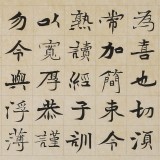 為喜也切須
常加簡束令
熟讀經子訓
以寬厚恭謹
勿令與浮薄